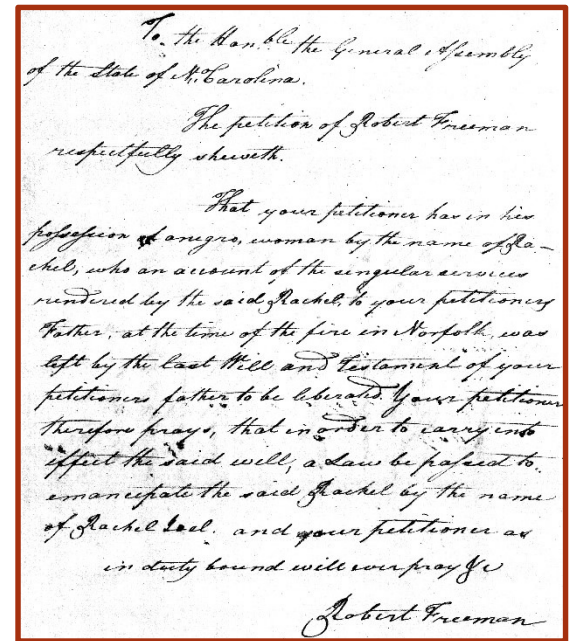 To, the Hon.ble the General Assembly
of the State of N. Carolina.
The petition of Robert Freeman
respectfully sheweth.
That your petitioner has in his
possession a negro, woman by the name of Ra-
chel, who an account of the singular services
rendered by the said Rachel, to your petitioners
Father, at the time of the fire in Norfolk, was
left by the last Will and Testament of your
petitioners father to be liberated. Your petitioner
therefore prays, that in order to carry into
effect the said will, a Law be passed to
emancepate the said Rachel by the name
of Rachel and your petitioner as
in duty bound will ever pray &c
Robert Freeman